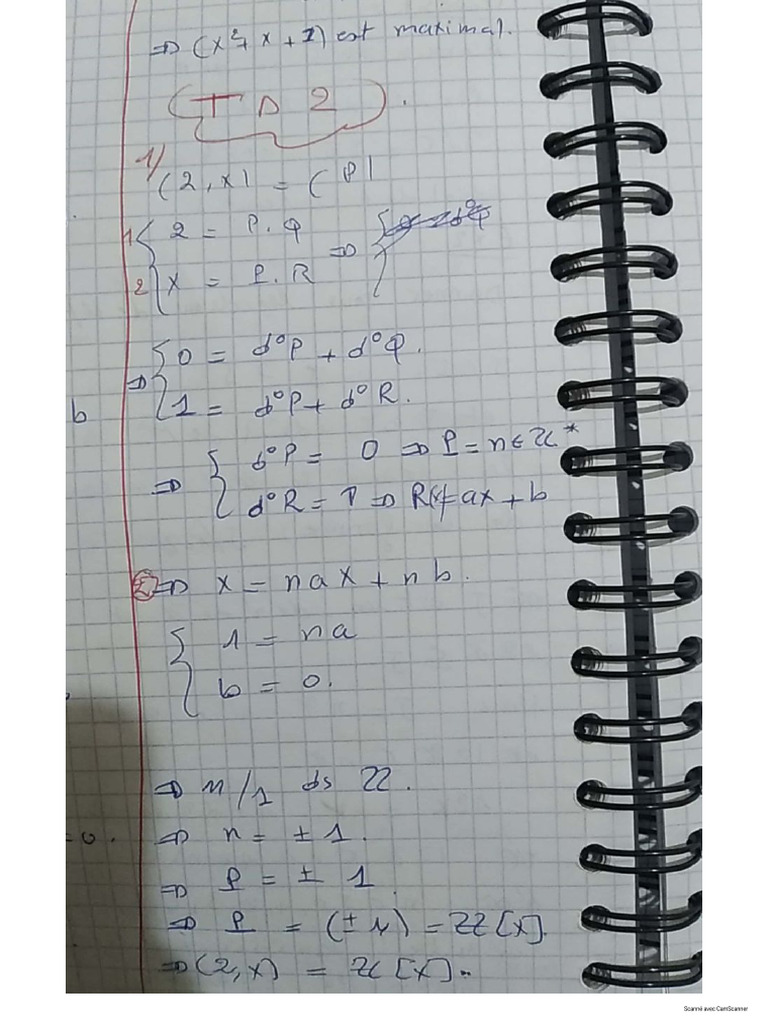 ⇒ (x²+x+1) est maximal.
(TD2).
1) (2,x) = (P)
1 { 2 = P.Q
2 { x = P.R ⇒ {
⇒ { 0 = d°P + d°Q.
{ 1 = d°P + d°R.
b
⇒ { d°P = 0 ⇒ P = n ∈ Z*
{ d°R = 1 ⇒ R(x)=ax+b
② ⇒ x = nax + nb.
{ 1 = na
{ b = 0.
⇒ n/1 ds Z.
=0.
⇒ n = ±1.
⇒ P = ±1
⇒ P = (±1) = Z[x].
⇒ (2,x) = Z[x].
Scanné avec CamScanner